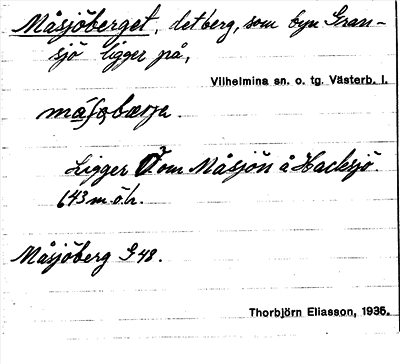 Måsjöberget, det berg, som byn Gran-
sjö ligger på,
Vilhelmina sn. o. tg. Västerb. l.
Ligger om Måsjön å Hacksjö
643 m.ö.h.
Måsjöberg G 48.
Thorbjörn Eliasson, 1935.